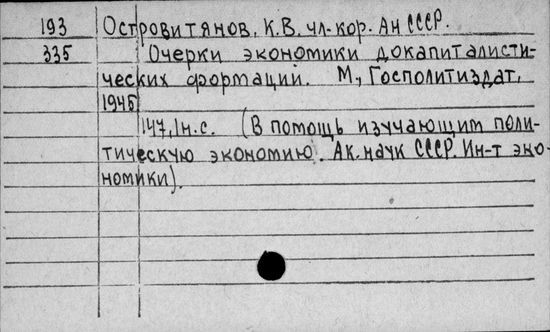 193 Островитянов, К.В. чл-кор. Ан СССР.
335 Очерки экономики докапиталисти-
ческих формаций. М., Госполитиздат,
1945
147,1н.с. (В помощь изучающим поли-
тическую экономию. Ак. наук СССР. Ин-т эко-
номики).